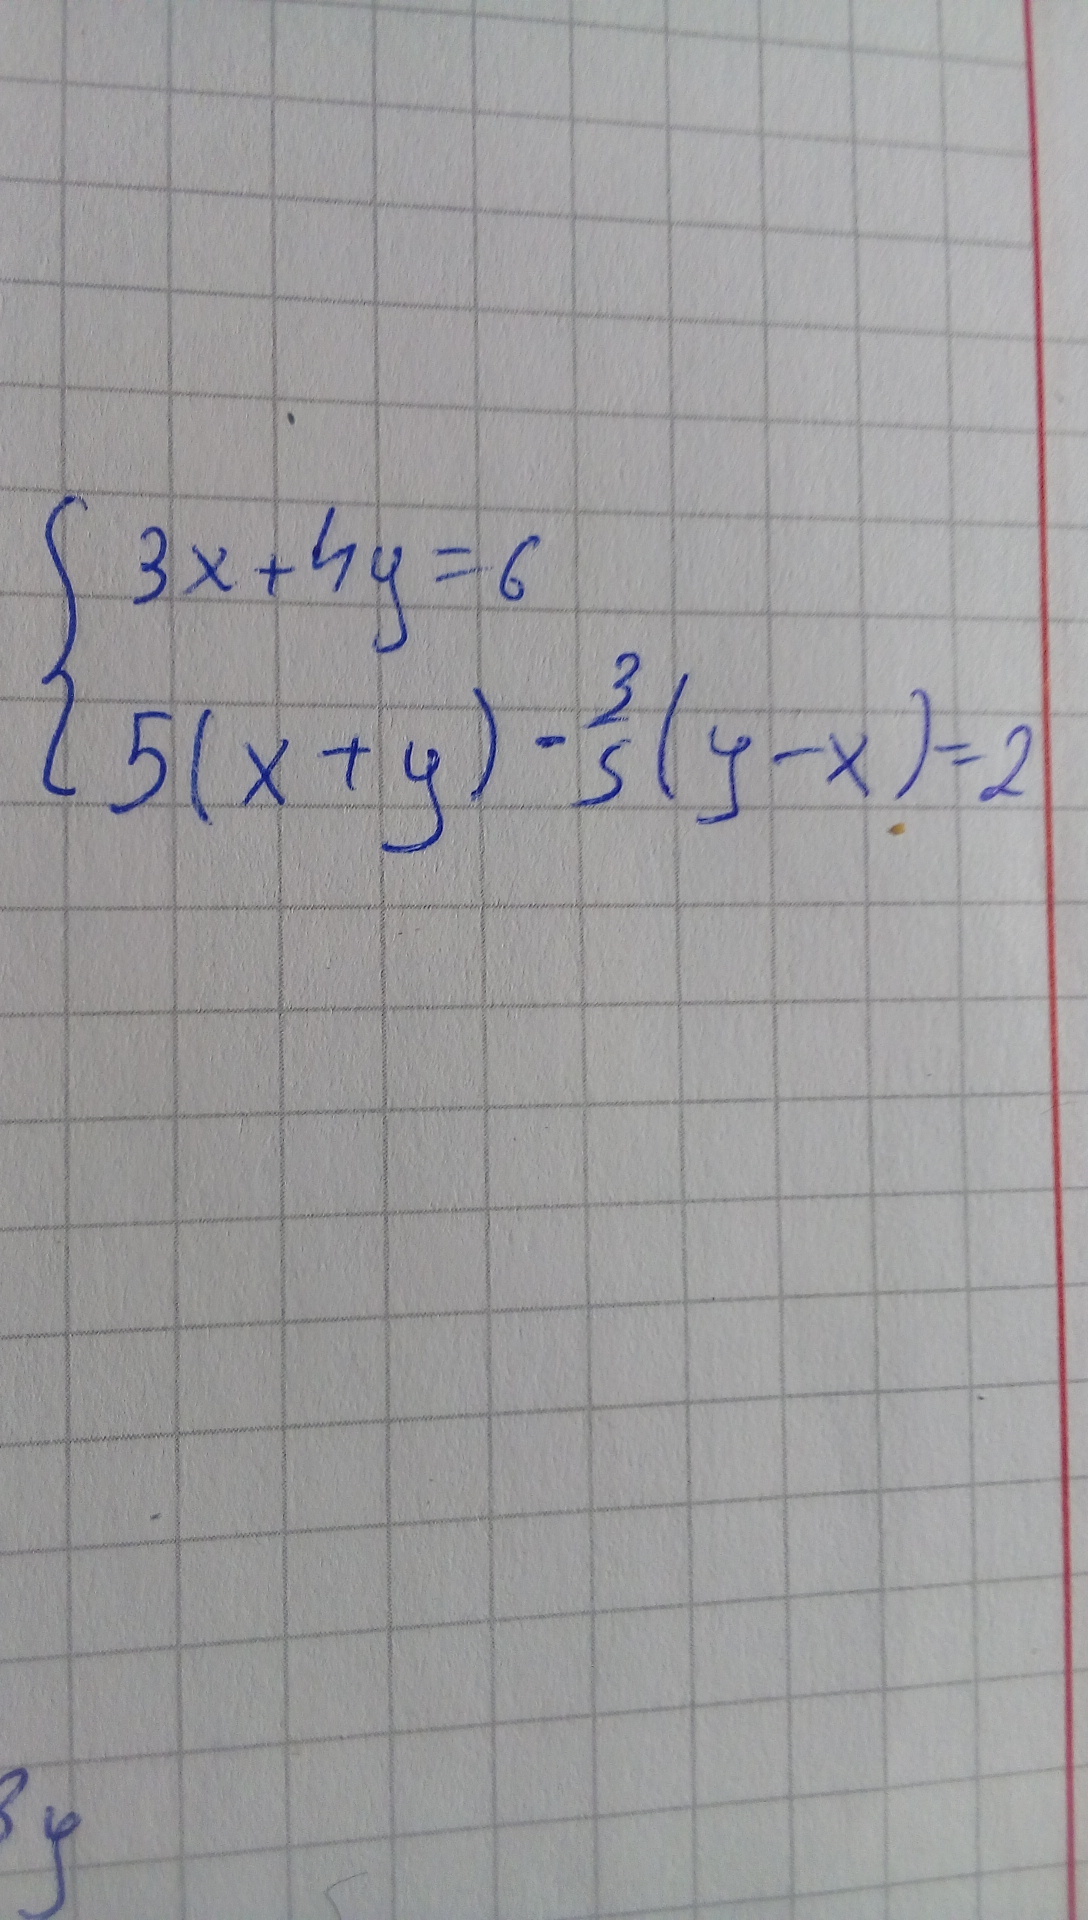 3x+4y=6
5(x+y)-3/5(y-x)=2
3y